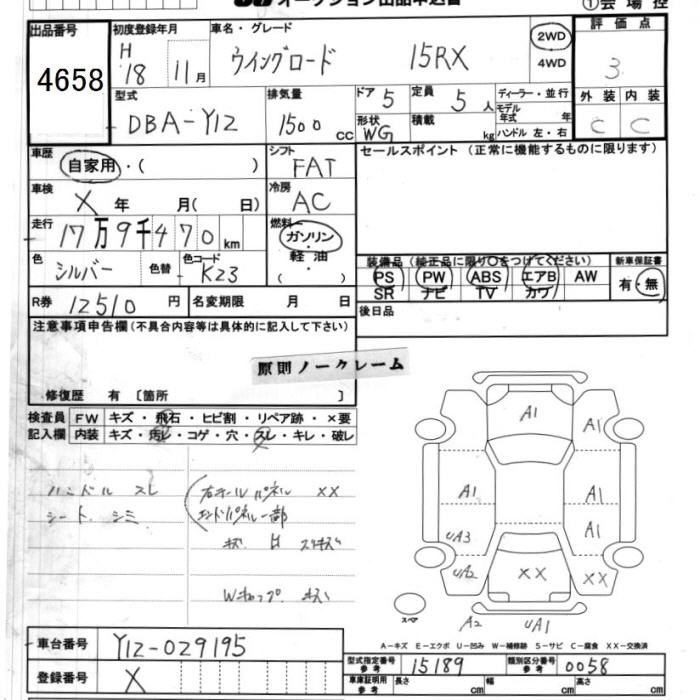 オークション出品申込書
①会場控
出品番号
4658
初度登録年月
H
18 11月
車名・グレード
ウイングロード 15RX
2WD
4WD
評価点
3
型式
DBA-Y12
排気量
1500 CC
ドア 5
定員 5人
形状 WG
積載 kg
ディーラー・並行
モデル年式 年
ハンドル 左・右
外装 内装
C C
車歴
自家用・( )
シフト
FAT
セールスポイント (正常に機能するものに限ります)
車検
X 年 月( 日)
冷房
AC
走行
17万9千470km
燃料
ガソリン
軽油
( )
色
シルバー
色替
色コード
K23
装備品 (純正品に限り○をつけてください)
PS PW ABS エアB AW
SR ナビ TV カワ
新車保証書
有・無
R券 12510円
名変期限 月 日
後日品
注意事項申告欄(不具合内容等は具体的に記入して下さい)
原則ノークレーム
修復歴 有〔箇所 〕
検査員 FW キズ・飛石・ヒビ割・リペア跡・×要
記入欄 内装 キズ・汚レ・コゲ・穴・スレ・キレ・破レ
ハンドル スレ
シート シミ
右テールパネル XX
エンドパネル一部
キズ
Wキャップ キズ
A1
A1
A1
A1
A1
UA3
UA2
XX
XX
A2
UA1
スペア
A-キズ E-エクボ U-凹み W-補修跡 S-サビ C-腐食 XX-交換済
車台番号 Y12-029195
登録番号 X
型式指定番号 参考 15189
類別区分番号 参考 0058
車庫証明用 参考 長さ cm 幅 cm 高さ cm